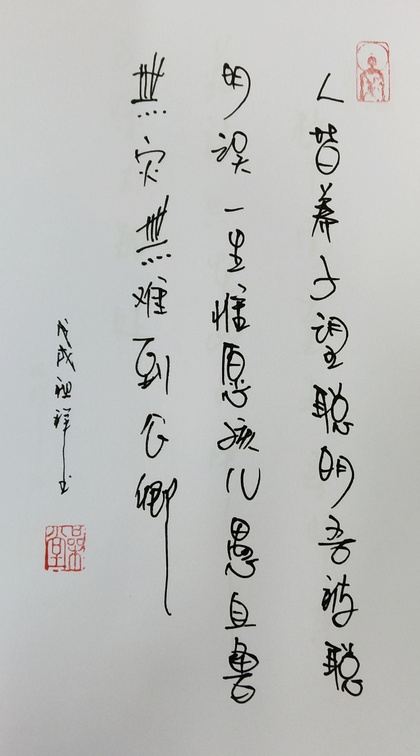 人皆养子望聪明吾被聪
明误一生惟愿孩儿愚且鲁
無灾無难到公卿
戊戌祖祥